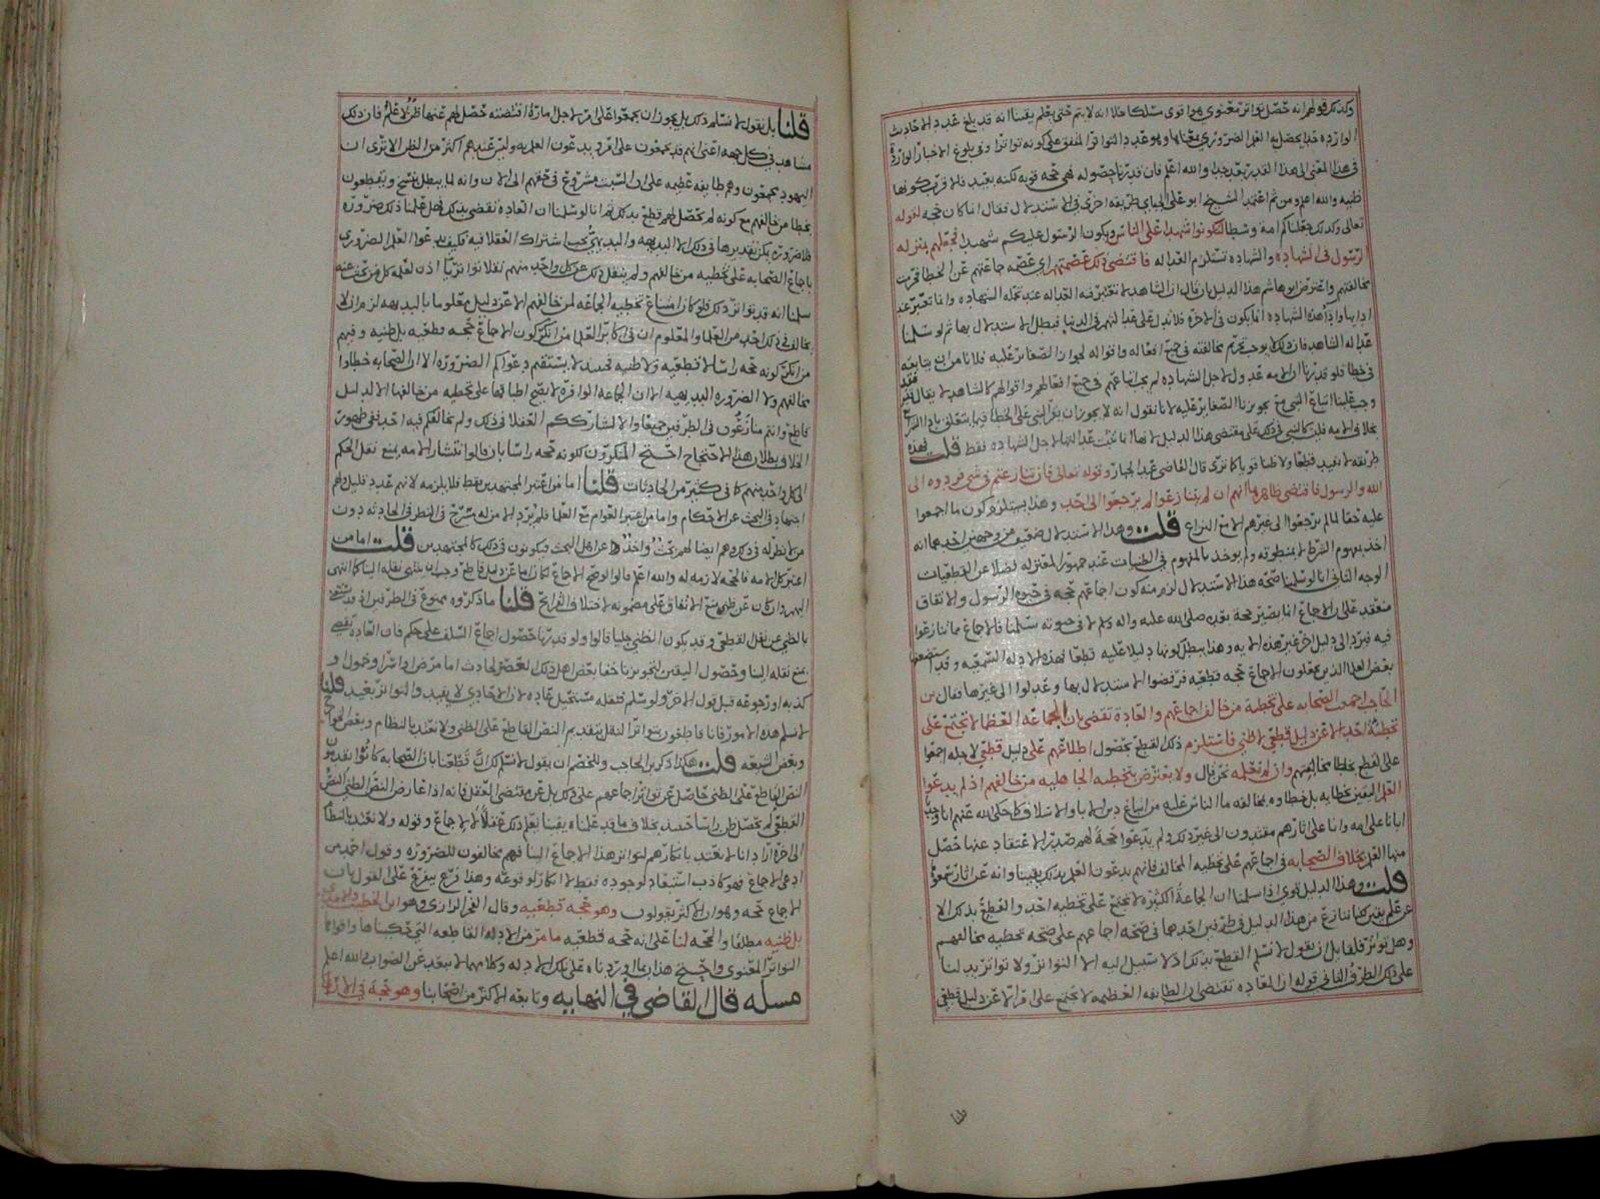 وكذلك قولهم انه حصل تواتر معنوي هوا قوى مسلكا خلا انه لا يتم حتى يعلم يقينا انه قد بلغ عدد الاحاديث
الوارده حدا يحصل به العلم الضروري بمعناها وهو عدد التواتر المتفق على كونه تواترا وفي بلوغ الاخبار الوارده
في هذا المعنى الى هذا القدر بعد جدا والله اعلم فان قدرنا حصوله فهي حجه قويه لكنه بعيد فلا قرب كونها
ظنيه والله اعلم ومن ثم اعتمد الشيخ ابو علي الجباي طريقه اخرى في الاستدلال فقال انما كان حجه لقوله
تعالى وكذلك جعلناكم امة وسطا لتكونوا شهداء على الناس ويكون الرسول عليكم شهيدا فجعلهم بمنزله
الرسول في الشهاده والشهاده تستلزم العداله فاقتضى ذلك عصمتهم اي عصمه جماعتهم عن الخطا فحرمت
مخالفتهم واعترض ابو هاشم هذا الدليل بان قال ان الشاهد لا تعتبر فيه العداله عند تحمله الشهاده وانما تعتبر عند
ادايها واذا هذه الشهاده انما يكون في الاخره فلا تدل على عدالتهم في الدنيا فبطل الاستدلال بها ثم لو سلمنا
عداله الشاهد فان ذلك لا يوجب تحريم مخالفته في جميع افعاله واقواله لجواز الصغاير عليه فلا نامن ان يتابعه
في خطا فلو قدرنا ان الامه عدول لاجل الشهاده لم يجب اتباعهم في جميع افعالهم واقوالهم كالشاهد لا يقال فقد
وجب علينا اتباع النبي مع تجويزنا الصغاير عليه لانا نقول انه لا يجوز ان يقر النبي على الخطا فيما يتعلق باداء الشرع
بخلاف الامه فليست كالنبي في ذلك على مقتضى هذا الدليل لانها انما تثبت عدالتها لاجل الشهاده فقط قلت فهذه
طريقه لا تفيد قطعا ولا ظنا قويا كما ترى قال القاضي عبد الجبار وقوله تعالى فان تنازعتم في شي فردوه الى
الله والرسول فاقتضى ظاهرها انهم ان لم يتنازعوا لم يرجعوا الى احد وهذا يستلزم كون ما اجمعوا
عليه حقا لما لم يرجعوا الى غيرهم الا مع النزاع قلت وهذا الاستدلال ضعيف من وجهين احدهما انه
اخذ بمفهوم الشرط لا بمنطوقه ولم يوخذ بالمفهوم في الظنيات عند جمهور المعتزله فضلا عن القطعيات
الوجه الثاني انا لو سلمنا صحه هذا الاستدلال لزم منه كون اجماعهم حجه في حيوة الرسول والاتفاق
منعقد على ان الاجماع انما يصير حجة بعده صلى الله عليه واله وسلم لا في حيوته سلمنا فالاجماع ما تنازعوا
فيه فيرد الى دليل اخر غير هذه الايه وهذا يبطل كونها دليلا عليه قطعا لهذه الادله السمعيه وقد استضعفها
بعض العلما الذين يجعلون الاجماع حجه قطعيه فرفضوا الاستدلال بها وعدلوا الى غيرها فقال بن
الحاجب اجمع الصحابه على تخطية من خالف اجماعهم والعادة تقضي بان الجماعه العظما لا تجتمع على
تخطية احد الا عن دليل قطعي لا ظني فاستلزم ذلك القطع بحصول اطلاعهم على دليل قطعي لاجله اجمعوا
على القطع بخطا مخالفيهم وان لم ننقله نحن قال ولا يعترض بتخطيه الجاهليه من خالفهم اذ لم يدعوا
العلم اليقين بخطايه بل خطاوه بمخالفه ما الناس عليه من اتباع دين الابا والاسلاف كما حكى الله عنهم انا وجدنا
ابانا على امه وانا على اثارهم مقتدون الى غير ذلك ولم يدعوا حجة لهم ضد الاعتقاد عندها حصل
منها العلم بخلاف الصحابه في اجماعهم على تخطيه المخالف فانهم يدعون العلم بذلك يقينا وانه عن اثار تتبعوا
قلت وهذا الدليل قوي اذا سلمنا ان الجماعة الكثيرة لا تجتمع على تخطيه احد والقطع بذلك الا
عن علم يقين لكنا ننازع من هذا الدليل في طرفين احدهما في صحه اجماعهم على صحه تخطيه مخالفهم
وهل تواتر فلقايل ان يقول لا نسلم القطع بذلك اذ لا سبيل اليه الا التواتر ولا تواتر يدلنا
على ذلك الطرف الثاني قوله ان العاده تقتضي ان الطايفه العظيمه لا تجتمع على امر الا عن دليل قطعي
قلنا
قلنا بل نقول لا نسلم ذلك بل يجوز ان يجمعوا على امر لاجل امارة اقتضته حصل لهم عنها ظن لا علم فان ذلك
مشاهد في كل جهه اعني انهم قد يجمعون على امر ويدعون العلم به وليس عندهم اكثر من الظن الا ترى ان
اليهود يجمعون وهم طايفه عظيمه على ان السبت مشروع في حقهم الى الان وانه لما يبطل بنسخ ويقطعون
بخطا من خالفهم مع كونه لم يحصل لهم قطع بذلك ثم انا لو سلمنا ان العاده تقضي بذلك فهل علمنا ذلك ضرورة
فلا ضروره يمكن تقديرها في ذلك الا البديهه والبديهي يجب اشتراك العقلا فيه فكيف يدعوا العلم الضروري
باجماع الصحابه على تخطيه من خالفهم ولم ينقل ذلك عن كل واحد منهم نقلا تواتريا اذن لعلمه كل من بحث عنه
سلمنا انه قد تواتر ذلك فلو كان امتناع تخطيه الجماعه لمن خالفهم الا عن دليل معلوما بالبديهه لزم ان لا
يخالف في ذلك احد من العلما والمعلوم ان في اكابر العلما من انكر كون الاجماع حجه قطعيه بل ظنيه وفيهم
من انكر كونه حجه راسا لا قطعيه ولا ظنيه فحينئذ لا يستقيم دعواكم الضرورة الا ان الصحابه خطاوا
مخالفهم ولا الضروره البديهيه الا ان الجماعه الوافرة لا يصح اطباقها على تخطيه من خالفها الا لدليل
قاطع وانتم منازعون في الطرفين جميعا والا لشارككم العقلا في ذلك ولم يخالفكم فيه احد ففي ظهور
الخلاف بطلان هذا الاحتجاج احتج المنكرون لكونه حجه راسا بان قالوا انتشار الامه يمنع نقل الحكم
الى كل واحد منهم كما في كثير من الحادثات قلنا اما من اعتبر المجتهدين فقط فلا يلزمه لانهم عدد قليل ولهم
اجتهاد في البحث عن الاحكام واما من اعتبر العوام مع العلما فلم يرد الا من له مسرح في النظر في الحادثه دون
من لا نظر له في ذلك وهم ايضا لهم بحث واخذ عن اهل البحث فيكونون في ذلك كالمجتهدين قلت اما من
اعتبر كل الامه فالحجه لازمه له والله اعلم قالوا لو صح الاجماع لكان اما عن دليل قاطع وجب ان ينتهي نقله الينا كما انتهى
اليهم وان كان عن ظن منع الاتفاق على مضمونه اختلاف القرايح قلنا ما ذكروه ممنوع في الطرفين اذ قد يستغنى
بالظني عن نقل القطعي وقد يكون الظني جليا قالوا ولو قدرنا حصول اجماع السلف على حكم فان العاده تقضي
بمنع نقله الينا وحصول اليقين لتجويزنا خفا بعض اهل ذلك العصر لحادث اما مرض او اسر او خمول او
كذبه او رجوعه قبل قول الاخر ولو سلم فنقله مستحيل عاده لان الاحادي لا يفيد والتواتر بعيد قلنا
لا نسلم هذه الامور فانا قاطعون بتواتر النقل بتقديم النص القاطع على الظني ولا نعتد بالنظام وبعض الخوارج
وبعض الشيعه قلت هكذا ذكر بن الحاجب وللخصم ان يقول لا نسلم لك ان قطعنا بان الصحابه كانوا يقدمون
النص القاطع على الظني حاصل عن تواتر اجماعهم على ذلك بل عن مقتضى العقل فانه اذا عارض النص الظني النص
القطعي لم يحصل ظن راسا حينئذ بخلاف ما قد علمناه يقينا بعلم ذلك عقلا لا بالاجماع وقوله ولا نعتد بالنظام
الى اخره اراد انا لا نعتد بانكارهم لتواتر هذا الاجماع الينا فهم مخالفون للضروره وقول احمد من
ادعى الاجماع فهو كاذب استبعاد لوجوده فقط لا انكار لوقوعه وهذا فرع يتفرع على القول بان
الاجماع حجه وهو ان الاكثر يقولون وهو حجه قطعيه وقال الفخر الرازي وهو ابن الخطيب والامدي
بل ظنيه مطلقا والحجه لنا على انه حجه قطعيه ما مر من الادله القاطعه التي حكيناها واقواها
التواتر المعنوي واحتج هذان بما اوردناه على تلك الادله وكلامهما لا يبعد عن الصواب والله اعلم
مسله قال القاضي في النهايه وتابعه الاكثر من اصحابنا وهو حجه في الارا